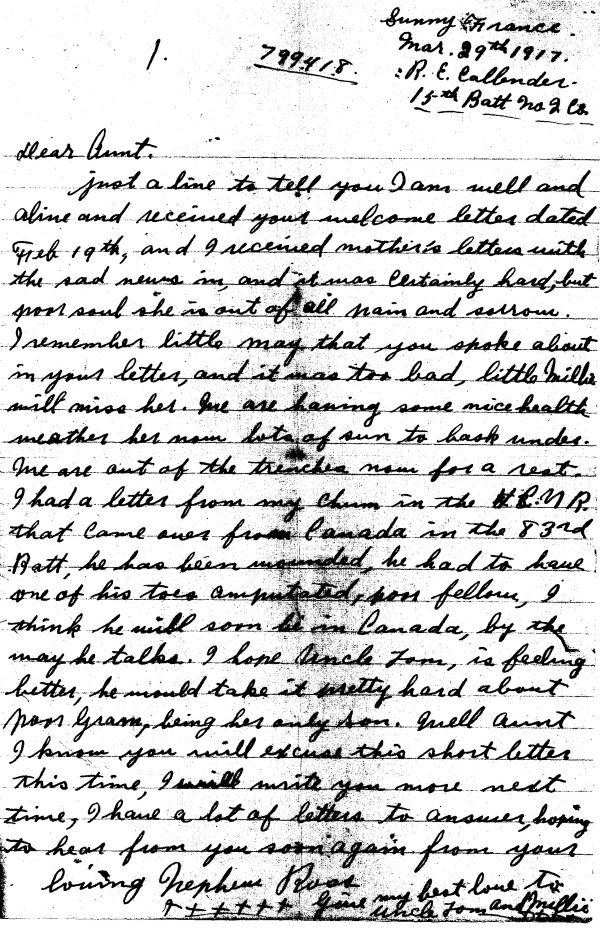 Sunny France.
Mar. 29th 1917.
1. 799418.
: R. E. Callender.
15th Batt No 2 Co.
Dear Aunt.
just a line to tell you I am well and
aline and received your welcome letter dated
Feb 19th, and I received mother's letters with
the sad news in, and it was certainly hard, but
poor soul she is out of all pain and sorrow.
I remember little may that you spoke about
in your letter, and it was too bad, little Millie
will miss her. We are having some nice health
weather her now lots of sun to bask under.
We are out of the trenches now for a rest.
I had a letter from my chum in the
that came over from Canada in the 83rd
Batt, he has been wounded, he had to have
one of his toes amputated, poor fellow, I
think he will soon be in Canada, by the
way he talks. I hope Uncle Tom, is feeling
better, he would take it pretty hard about
poor Gram, being her only son. Well Aunt
I know you will excuse this short letter
this time, I will write you more next
time, I have a lot of letters to answer, hoping
to hear from you soon again from your
loving Nephew Ross
++++++ Give my best love to
Uncle Tom and Millie